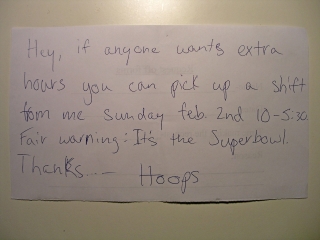 Hey, if anyone wants extra
hours you can pick up a shift
from me Sunday feb. 2nd 10-5:30.
Fair warning: It's the Superbowl.
Thanks....
Hoops